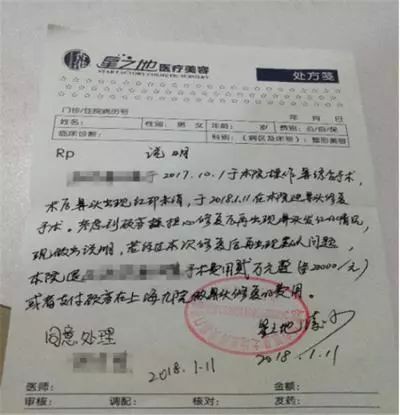 星之地医疗美容
STAR FACTORY COSMETIC SURGERY
处方笺
门诊/住院病历号 年 月 日
姓名: 性别: 男 女 年龄: 岁 费别: 公/自/保
临床诊断: 科别: (病区及床號): 整形美容
Rp 说明
于2017.10.1于本院操作鼻综合手术,
术后鼻头出现红印未消,于2018.1.11在本院进鼻头修复
手术。考虑到 担心修复后再出现鼻头发红的情况,
现做出说明,若经过本次修复后再出现鼻头问题,
本院退 手术费用贰万元整(¥20000/元)
或者支付 在上海九院做鼻头修复的费用。
同意处理 星之地
2018.1.11 2018.1.11
医师: 金额:
审核: 调配: 核对: 发药: